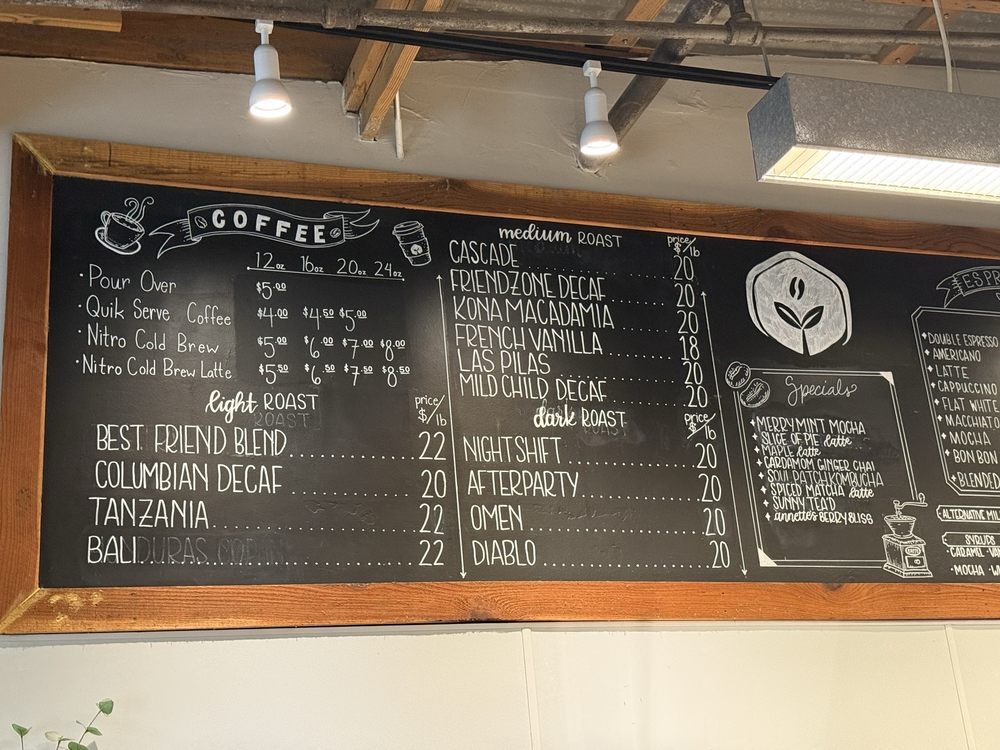 COFFEE
12oz 16oz 20oz 24oz
· Pour Over $5.00
· Quik Serve Coffee $4.00 $4.50 $5.00
· Nitro Cold Brew $5.00 $6.00 $7.00 $8.00
· Nitro Cold Brew Latte $5.50 $6.50 $7.50 $8.50
light ROAST price/ $/lb
BEST FRIEND BLEND 22
COLUMBIAN DECAF 20
TANZANIA 22
BALI 22
medium ROAST price/ $/lb
CASCADE 20
FRIENDZONE DECAF 20
KONA MACADAMIA 20
FRENCH VANILLA 18
LAS PILAS 20
MILD CHILD DECAF 20
dark ROAST price/ $/lb
NIGHTSHIFT 20
AFTERPARTY 20
OMEN 20
DIABLO 20
Specials
MERRY MINT MOCHA
SLICE OF PIE latte
MAPLE latte
CARDAMOM GINGER CHAI
SOUL PATCH KOMBUCHA
SPICED MATCHA latte
SUNNY TEA'D
annette's BERRY BLISS
ESPR
DOUBLE ESPRESSO
AMERICANO
LATTE
CAPPUCCINO
FLAT WHITE
MACCHIATO
MOCHA
BON BON
BLENDED
ALTERNATIVE MIL
SYRUPS
· CARAMEL · VA
· MOCHA · W